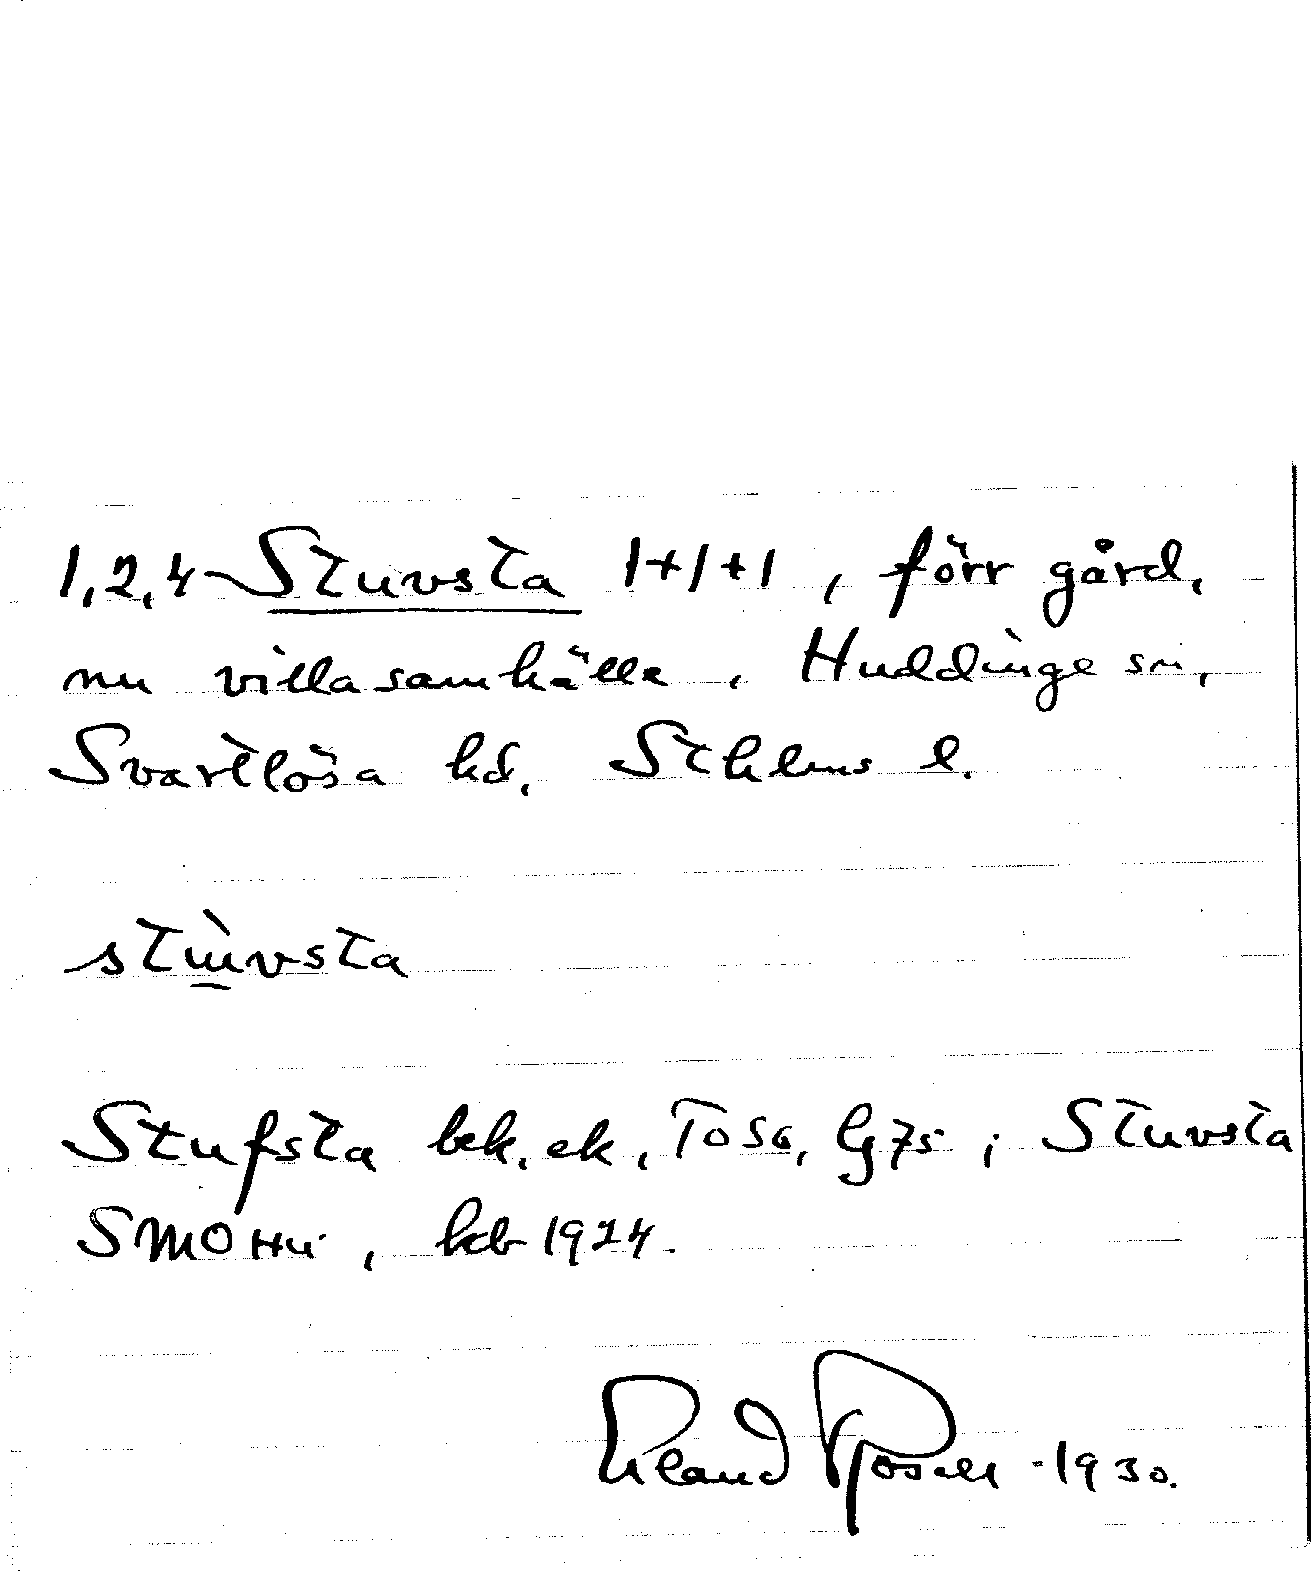 1,2,4 Stuvsta 1+1+1, förr gård,
nu villasamhälle, Huddinge sn,
Svartlösa hd, Sthlms l.
stu̠̇vsta
Stufsta bek. ek, To56, Gj75; Stuvsta
SMOHu, hdb 1924.
Erland Rosell -1930.